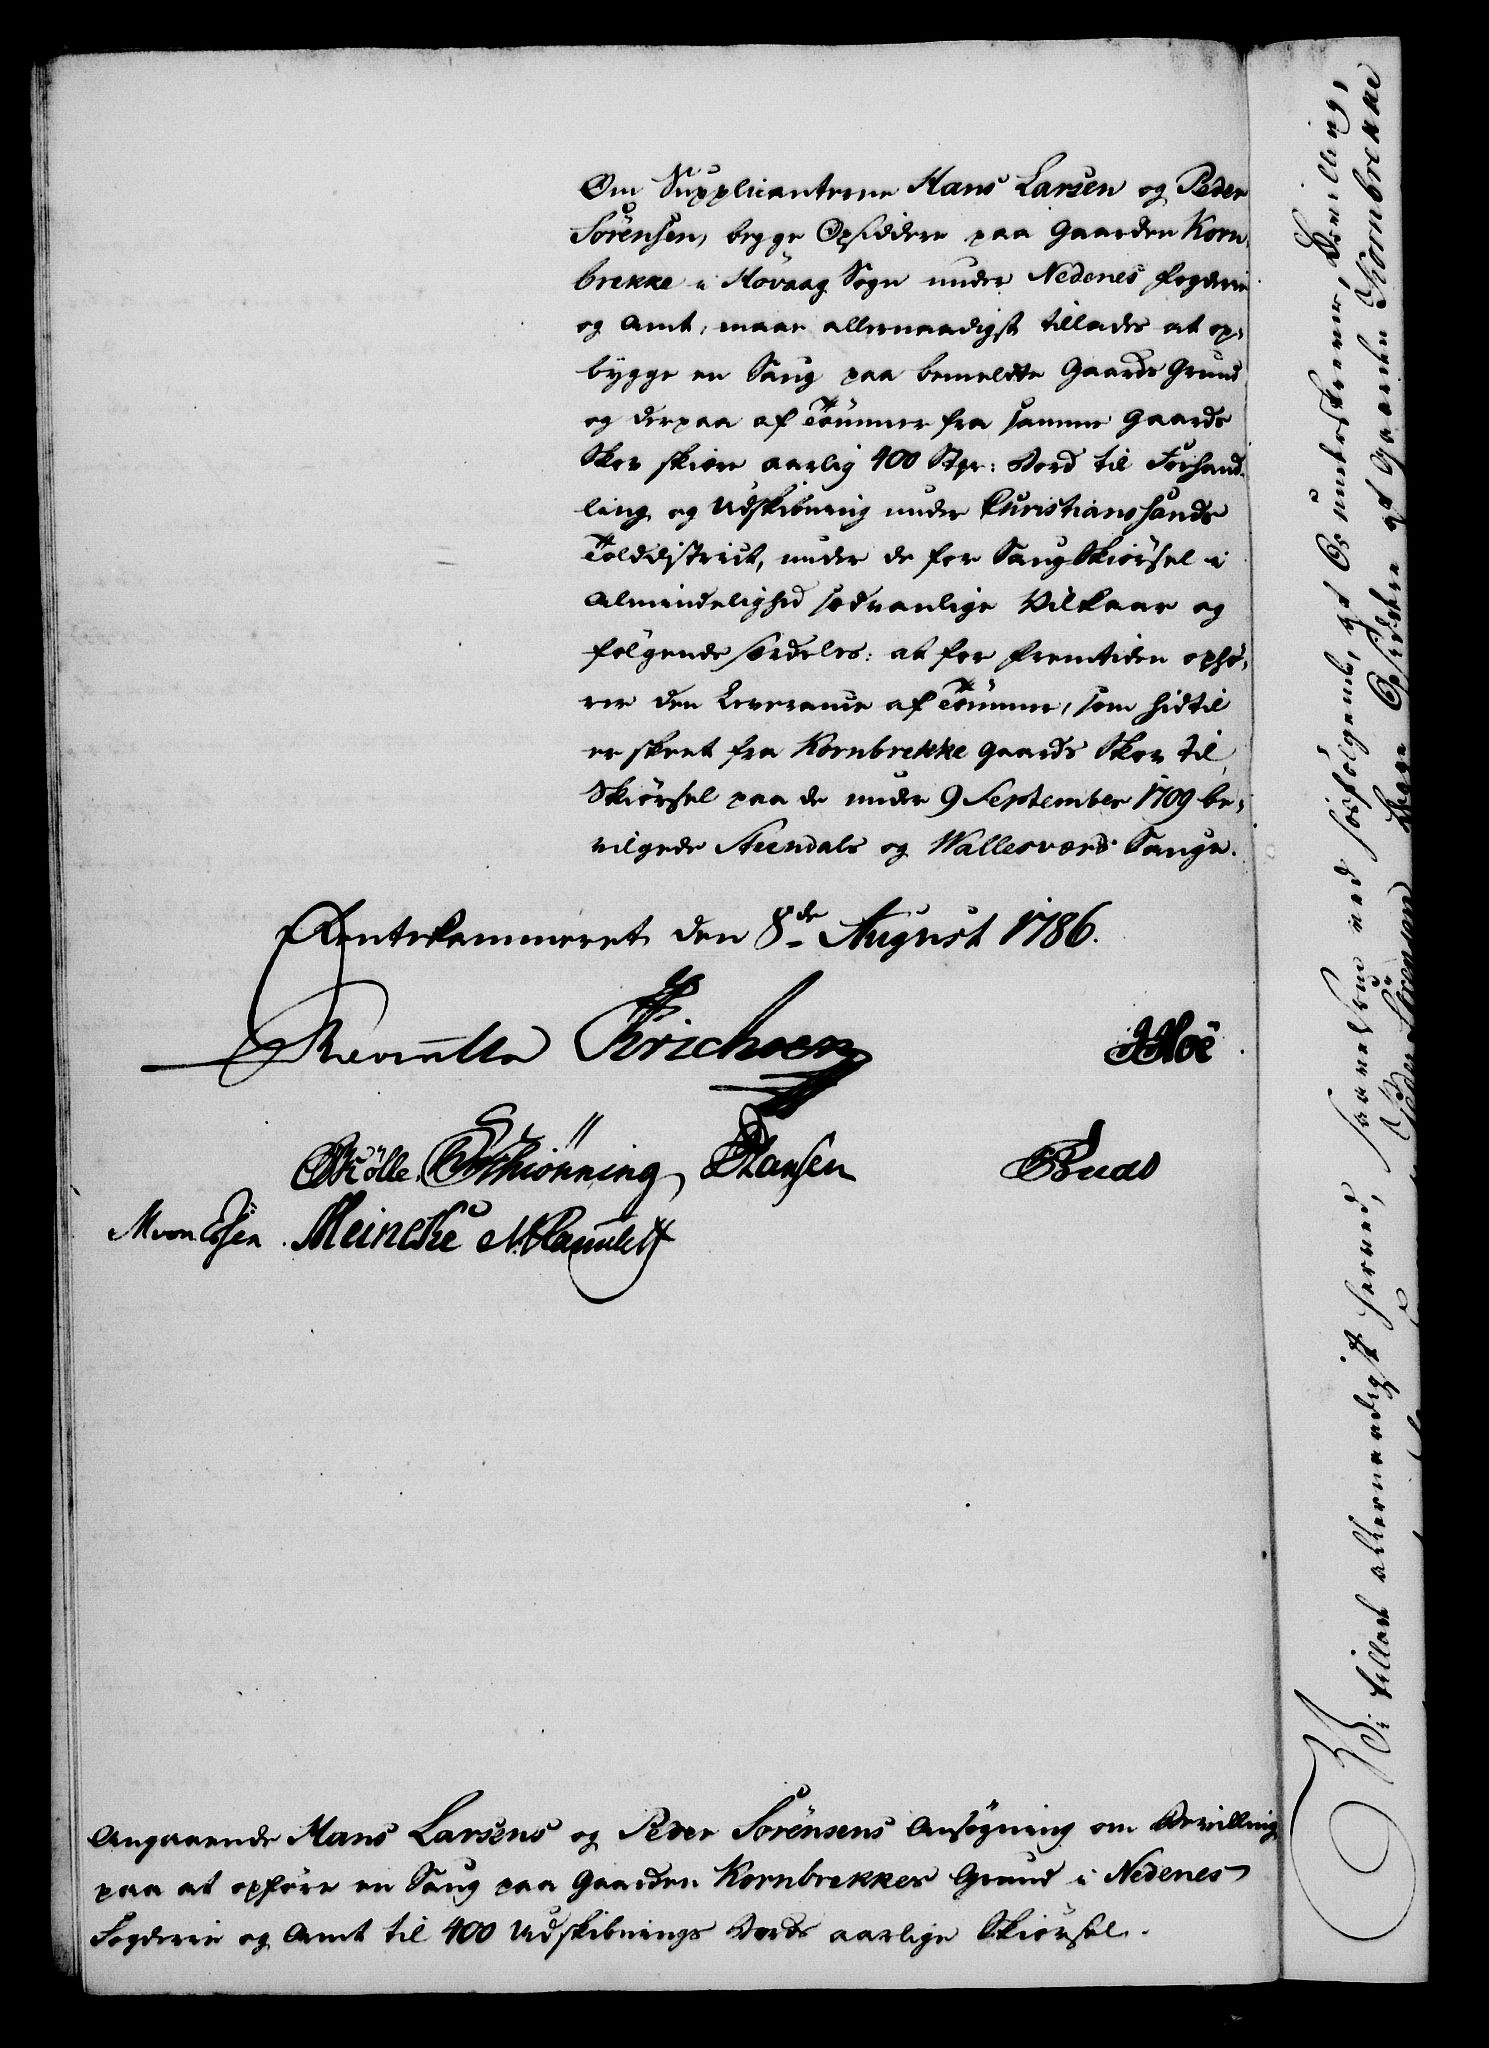 Om Supplicanterne Hans Larsen og Peder
Sörensen, begge Opsiddere paa Gaarden Korn-
brekke i Hövaag Sogn under Nedenes Fogderie
og Amt, maae allernaadigst tillades at op-
bygge en Saug paa bemeldte Gaards Grund
og derpaa af Tömmer fra samme Gaards
Skov skiære aarlig 400 Stkr: Bord til Forhand-
ling og Udskibning under Christianssands
Tolddistrict, under de for SaugSkiörsel i
Almindelighed sædvanlige Vilkaar og
følgende særdeles: at for Fremtiden ophö-
rer den Leverance af Tömmer, som hidtil
er skeet fra Kornbrekke Gaards Skov til
Skiörsel paa de under 9 September 1709 be-
vilgede Steendals og Wallesværds Sauge.
Rentekammeret den 8de August 1786.
Reventlow Erichsen Hoë
Mölle Schiönning Hansen Buds
M von Essen Meincke
Angaaende Hans Larsens og Peder Sörensens Ansögning om Bevilling
paa at opföre en Saug paa Gaarden Kornbrekkes Grund i Nedenes
Fogderie og Amt til 400 Udskibnings Bords aarlige Skiörsel.
Vi tillade allernaadigst herved, saavelsom ved hosfölgende, af Os underskrevne, Bevilling,
Peder Sörensen begge Opsiddere af Gaarden Kornbrekke